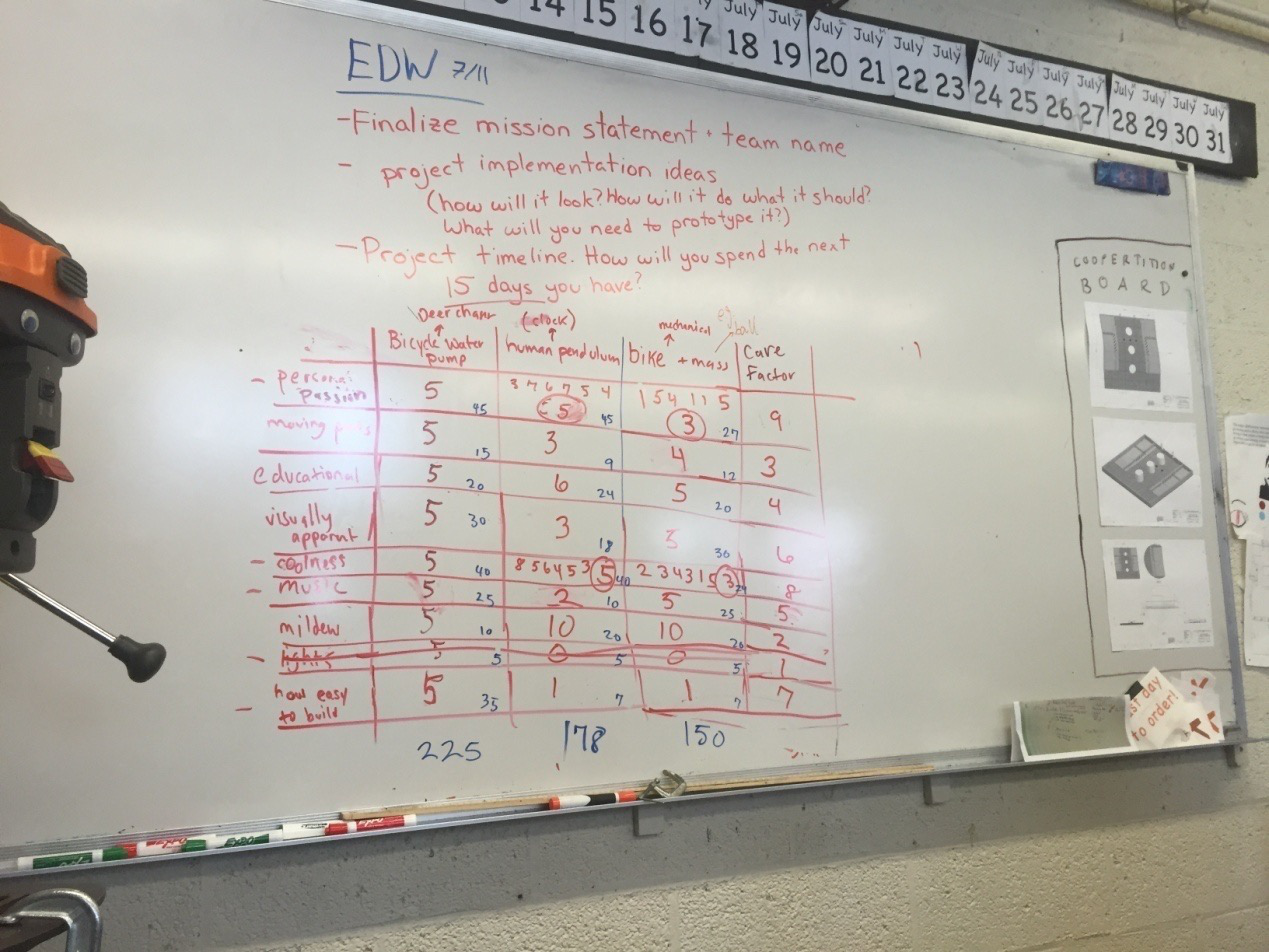 14 15 16 17 18 19 20 21 22 23 24 25 26 27 28 29 30 31
July July July July July July July July July July July July July July
EDW 7/11
-Finalize mission statement + team name
- project implementation ideas
(how will it look? How will it do what it should?
What will you need to prototype it?)
-Project timeline. How will you spend the next
15 days you have?
Deer chaser (clock) mechanical ball
Bicycle Water pump human pendulum bike + mass Care Factor
- personal passion 5 45 3 7 6 7 5 4 5 45 1 5 4 1 1 5 3 27 9
moving 5 15 3 9 4 12 3
educational 5 20 6 24 5 20 4
visually apparent 5 30 3 18 5 30 6
- coolness 5 40 8 5 6 4 5 3 5 40 2 3 4 3 1 5 3 24 8
- music 5 25 2 10 5 25 5
mildew 5 10 10 20 10 20 2
- lights 5 5 0 5 0 5 1
- how easy to build 5 35 1 7 1 7 7
225 178 150
COOPERTITION
BOARD
day
to order!
EXPO